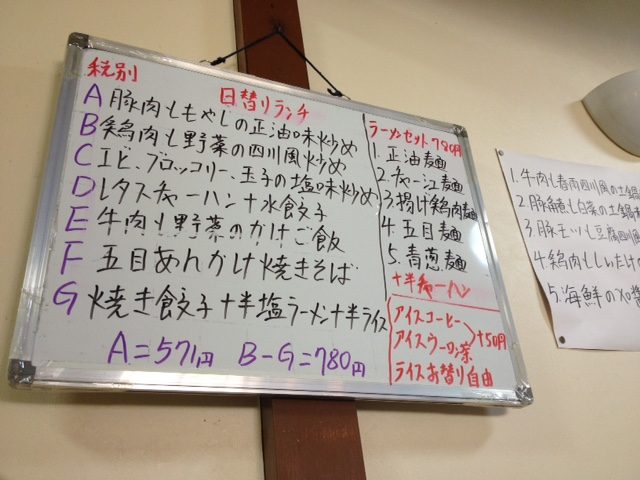 税別
日替りランチ
A 豚肉ともやしの正油味炒め
B 鶏肉と野菜の四川風炒め
C エビ、ブロッコリー、玉子の塩味炒め
D レタスチャーハン+水餃子
E 牛肉と野菜のかけご飯
F 五目あんかけ焼きそば
G 焼き餃子+半塩ラーメン+半ライス
A=571円 B-G=780円
ラーメンセット780円
1. 正油麺
2. チャー江麺
3. 揚げ鶏肉麺
4. 五目麺
5. 青葱麺
+半チャーハン
アイスコーヒー
アイスウーロン茶
+50円
ライスお替り自由
1. 牛肉と春雨四川風の土鍋
2. 豚 と白菜の土鍋
3. 豚モツと豆腐四川風
4. 鶏肉としいたけの
5. 海鮮のXO醤